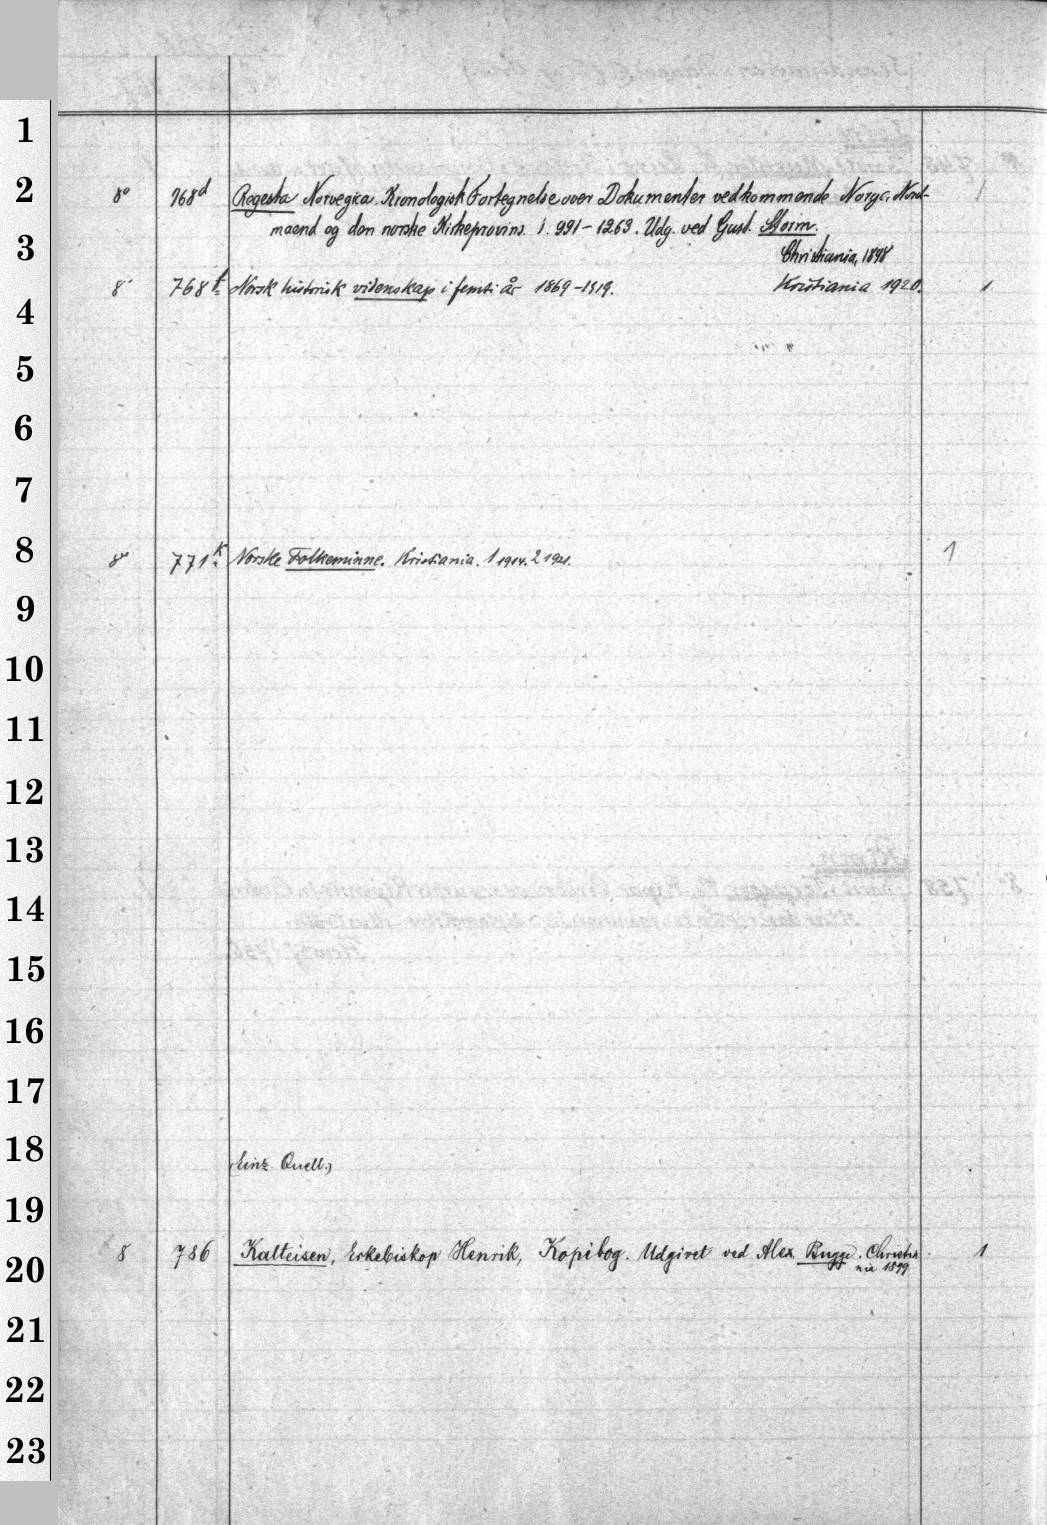 1
2
8° 768d Regesta Norvegica. Kronologisk Fortegnelse over Dokumenter vedkommende Norge, Nord- 1
maend og den norske Kirkeprovins. 1. 991-1263. Udg. ved Gust. Storm.
3
Christiania, 1898
8° 768f. Norsk historisk videnskap i femti år 1869-1919. Kristiania 1920. 1
4
5
6
7
8
8° 771k. Norske Folkeminne. Kristiania. 1 1914. 2 1921. 1
9
10
11
12
13
14
15
16
17
18
(Einz. Quell.)
19
8 786 Kalteisen, Erkebiskop Henrik, Kopibog. Udgivet ved Alex. Bugge. Christia 1
20
nia 1899
21
22
23